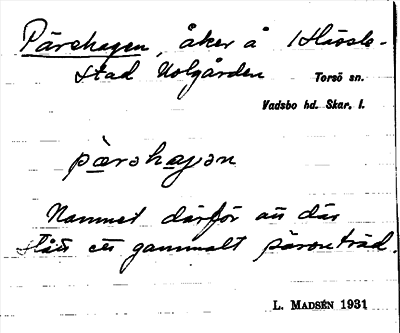 Pärehagen, åker å 1 Hassle-
stad Nolgården Torsö sn.
Vadsbo hd. Skar. l.
pæ̀rəhagən
Namnet därför att där
stått ett gammalt päronträd.
L. MADSÉN 1931